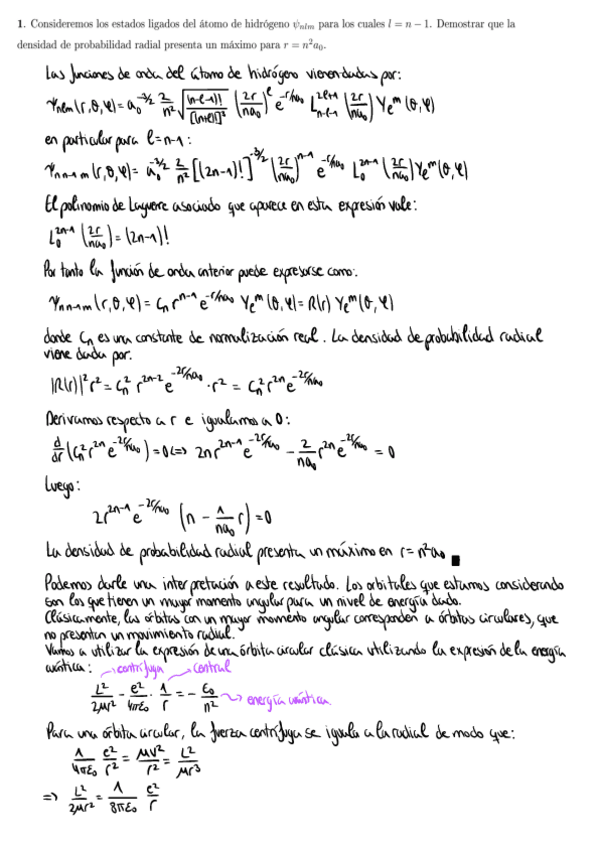 1. Consideremos los estados ligados del átomo de hidrógeno ψnlm para los cuales l = n − 1. Demostrar que la
densidad de probabilidad radial presenta un máximo para r = n²a₀.
Las funciones de onda del átomo de hidrógeno vienen dadas por:
Ψnlm(r,θ,φ) = a₀^(-3/2) 2/n² √((n-l-1)!/[(n+l)!]³) (2r/na₀)^l e^(-r/na₀) L_(n-l-1)^(2l+1) (2r/na₀) Yₗᵐ(θ,φ)
en particular para l=n-1:
Ψn n-1 m(r,θ,φ) = a₀^(-3/2) 2/n² [(2n-1)!]^(-3/2) (2r/na₀)^(n-1) e^(-r/na₀) L₀^(2n-1) (2r/na₀) Yₗᵐ(θ,φ)
El polinomio de Laguerre asociado que aparece en esta expresión vale:
L₀^(2n-1) (2r/na₀) = (2n-1)!
Por tanto la función de onda anterior puede expresarse como:
Ψn n-1 m(r,θ,φ) = Cn r^(n-1) e^(-r/na₀) Yₗᵐ(θ,φ) = R(r) Yₗᵐ(θ,φ)
donde Cn es una constante de normalización real. La densidad de probabilidad radial
viene dada por:
|R(r)|² r² = Cn² r^(2n-2) e^(-2r/na₀) · r² = Cn² r^(2n) e^(-2r/na₀)
Derivamos respecto a r e igualamos a 0:
d/dr (Cn² r^(2n) e^(-2r/na₀)) = 0 <=> 2n r^(2n-1) e^(-2r/na₀) - 2/na₀ r^(2n) e^(-2r/na₀) = 0
Luego:
2r^(2n-1) e^(-2r/na₀) (n - 1/na₀ r) = 0
La densidad de probabilidad radial presenta un máximo en r = n²a₀ ■
Podemos darle una interpretación a este resultado. Los orbitales que estamos considerando
son los que tienen un mayor momento angular para un nivel de energía dado.
Clásicamente, las órbitas con un mayor momento angular corresponden a órbitas circulares, que
no presentan un movimiento radial.
Vamos a utilizar la expresión de una órbita circular clásica utilizando la expresión de la energía
cuántica: centrífuga central
L²/2μr² - e²/4πε₀ · 1/r = - E₀/n² energía cuántica
Para una órbita circular, la fuerza centrífuga se iguala a la radial de modo que:
1/4πε₀ e²/r² = μv²/r² = L²/μr³
=> L²/2μr² = 1/8πε₀ e²/r